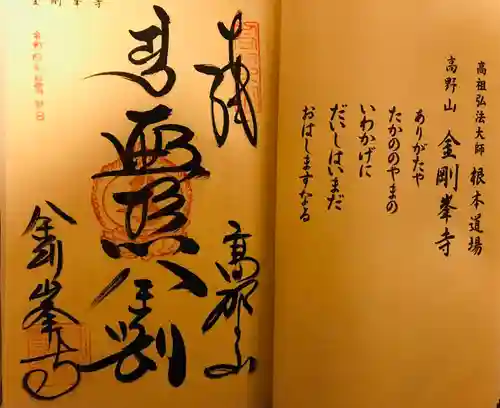 高祖弘法大師 根本道場
高野山 金剛峯寺
ありがたや
たかののやまの
いわかげに
だいしはいまだ
おはしますなる
金剛峯寺
奉
高野山
遍照金剛
金剛峯寺